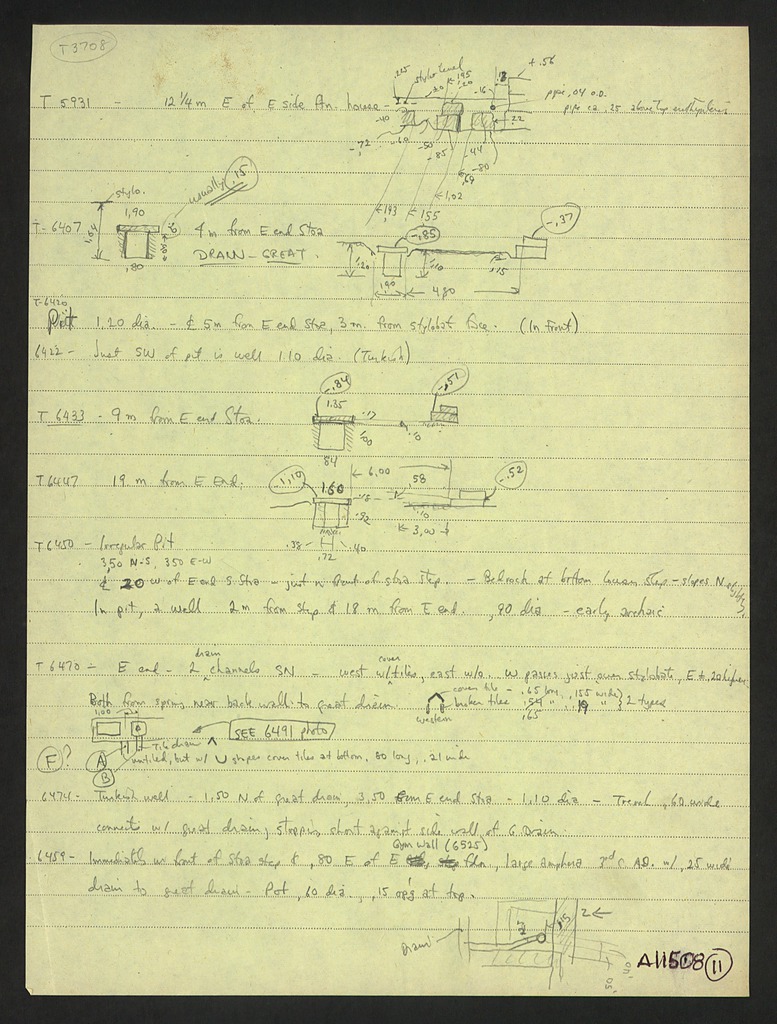 T 3708
T 5931 - 12 1/4 m E of E side house
.215 stylo level
.20 .195 .20 -.16 .18 + .56
pipe .04 O.D.
pipe ca .25 above top
-.40 .22
-.72 -.60 -.50 -.44
-.85 -.80
.69
←1.02
←1.93 ←1.55
stylo. usually .15
T-6407 1.90 4 m from E end Stoa
1.04 .80
DRAIN - GREAT.
-.85 -.37
1.20 1.10 .15
1.90 ← 4.80
T-6420
Pit 1.20 dia. - ₵ 5m from E end Stoa, 3 m. from stylobat face. (In front)
6422 - Just SW of pit is well 1.10 dia. (Turkish)
T 6433 - 9 m from E end Stoa.
-.84 -.51
1.35 .17
1.00 .10
84
T 6447 19 m from E End.
-1.10 ← 6.00 → -.52
1.60 .18 .58
.92 .10
← 3.00 →
.38 - H - .40
.72
T 6450 - Irregular Pit
3.50 N-S, 3.50 E-W
₵ 20 W of E end S Stoa - just in front of stoa step. - Bedrock at bottom lower step - slopes N
In pit, a well 2 m from step & 18 m from E end. .90 dia - early archaic
T 6470 - E end - 2 drain channels SN - west w/ cover tiles, east w/o. W passes just over stylobate, E + 20 higher
Both from spring near back wall to great drain.
western
cover tile - .65 long, .155 wide
broken tiles .54 " .19 " } 2 types
.65
1.00
SEE 6491 photo
To G drain
F? A untiled, but w/ U shapes cover tiles at bottom, 80 long, .21 wide
B
6474 - Turkish well - 1.50 N of great drain, 3.50 from E end Stoa - 1.10 dia - Trench, .60 wide
connects w/ great drain, stopping short against side wall of G Drain.
Gym Wall (6525)
6459 - Immediately in front of Stoa step ₵ .80 E of E, large amphora 3rd c A.D. w/ .25 wide
drain to great drain - Pot, .60 dia., .15 op'g at top.
drain
.25 .15 2 ←
.50 .40
A11508 11